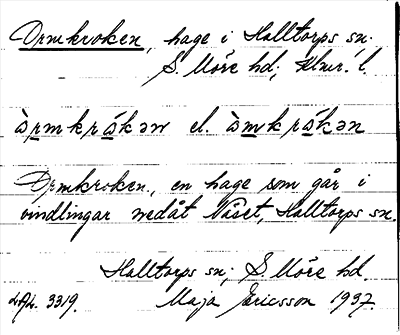 Ormkroken, hage i Halltorps sn.
S. Möre hd, Klmr. l.
òrmkrs̀kən el. òmkrs̀kən
Ormkroken, en hage som går i
vindlingar nedåt Näset, Halltorps sn.
Halltorps sn, S. Möre hd.
ULA. 3319. Maja Ericsson 1937.